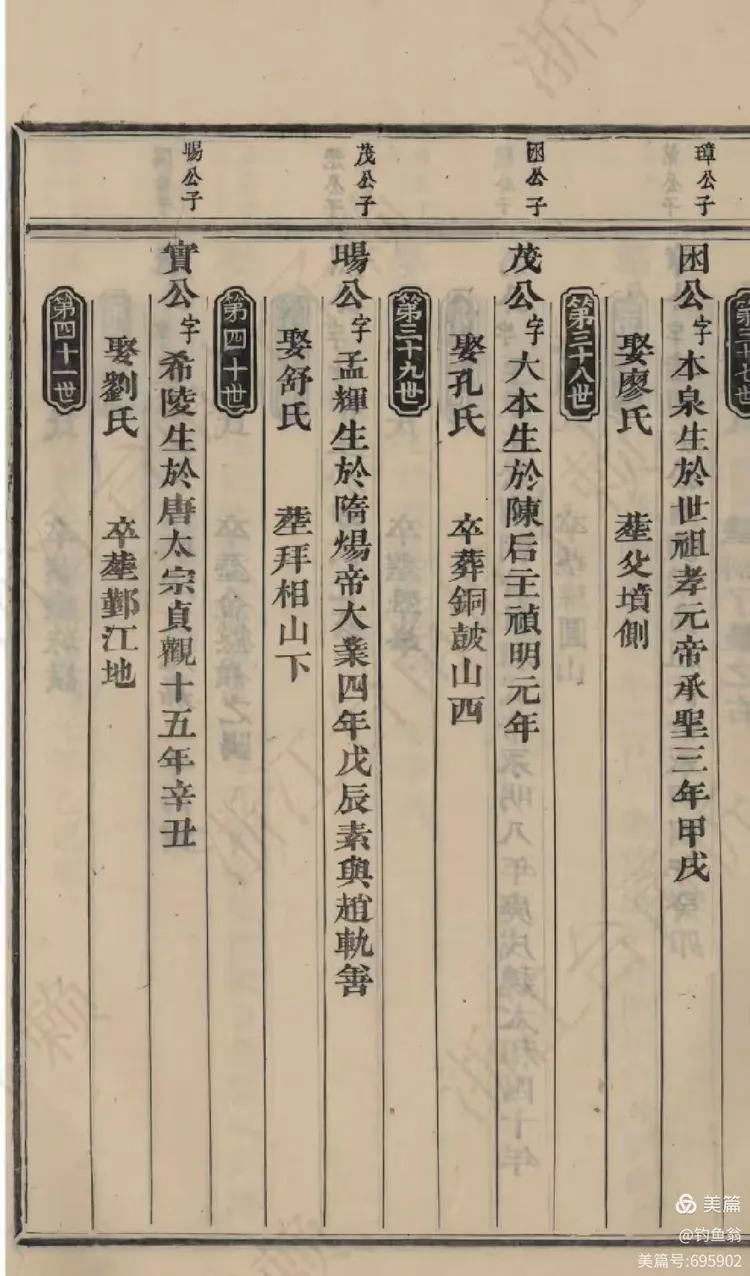 第三十七世
璋公子
困公字本泉生於世祖孝元帝承聖三年甲戌
娶廖氏 塟父墳側
第三十八世
困公子
茂公字大本生於陳后主禎明元年
娶孔氏 卒葬銅鼓山西
第三十九世
茂公子
暘公字孟輝生於隋煬帝大業四年戊辰素與趙軌善
娶舒氏 塟拜相山下
第四十世
暘公子
實公字希陵生於唐太宗貞觀十五年辛丑
娶劉氏 卒塟鄞江地
第四十一世
美篇
@钓鱼翁
美篇号:695902